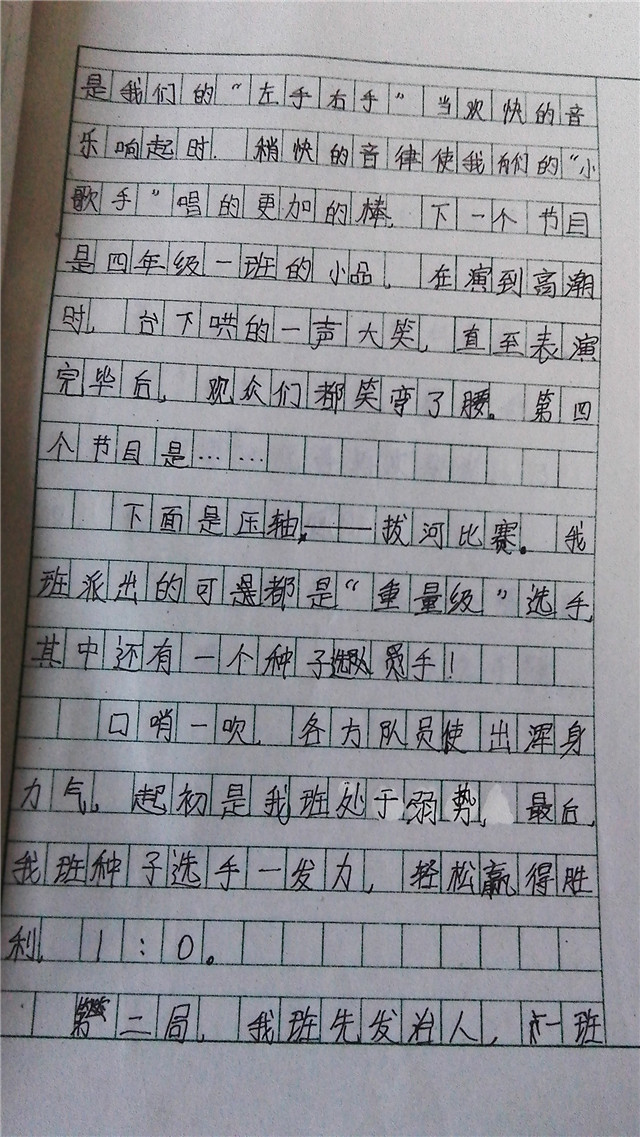 是我们的“左手右手”当欢快的音
乐响起时.稍快的音律使我们的“小
歌手”唱的更加的棒，下一个节目
是四年级一班的小品，在演到高潮
时，台下哄的一声大笑，直至表演
完毕后，观众们都笑弯了腰。第四
个节目是……
下面是压轴——拔河比赛。我
班派出的可是都是“重量级”选手，
其中还有一个种子选手！
口哨一吹，各方队员使出浑身
力气，起初是我班处于弱势，最后，
我班种子选手一发力，轻松赢得胜
利，1:0。
第二局，我班先发治人，一班